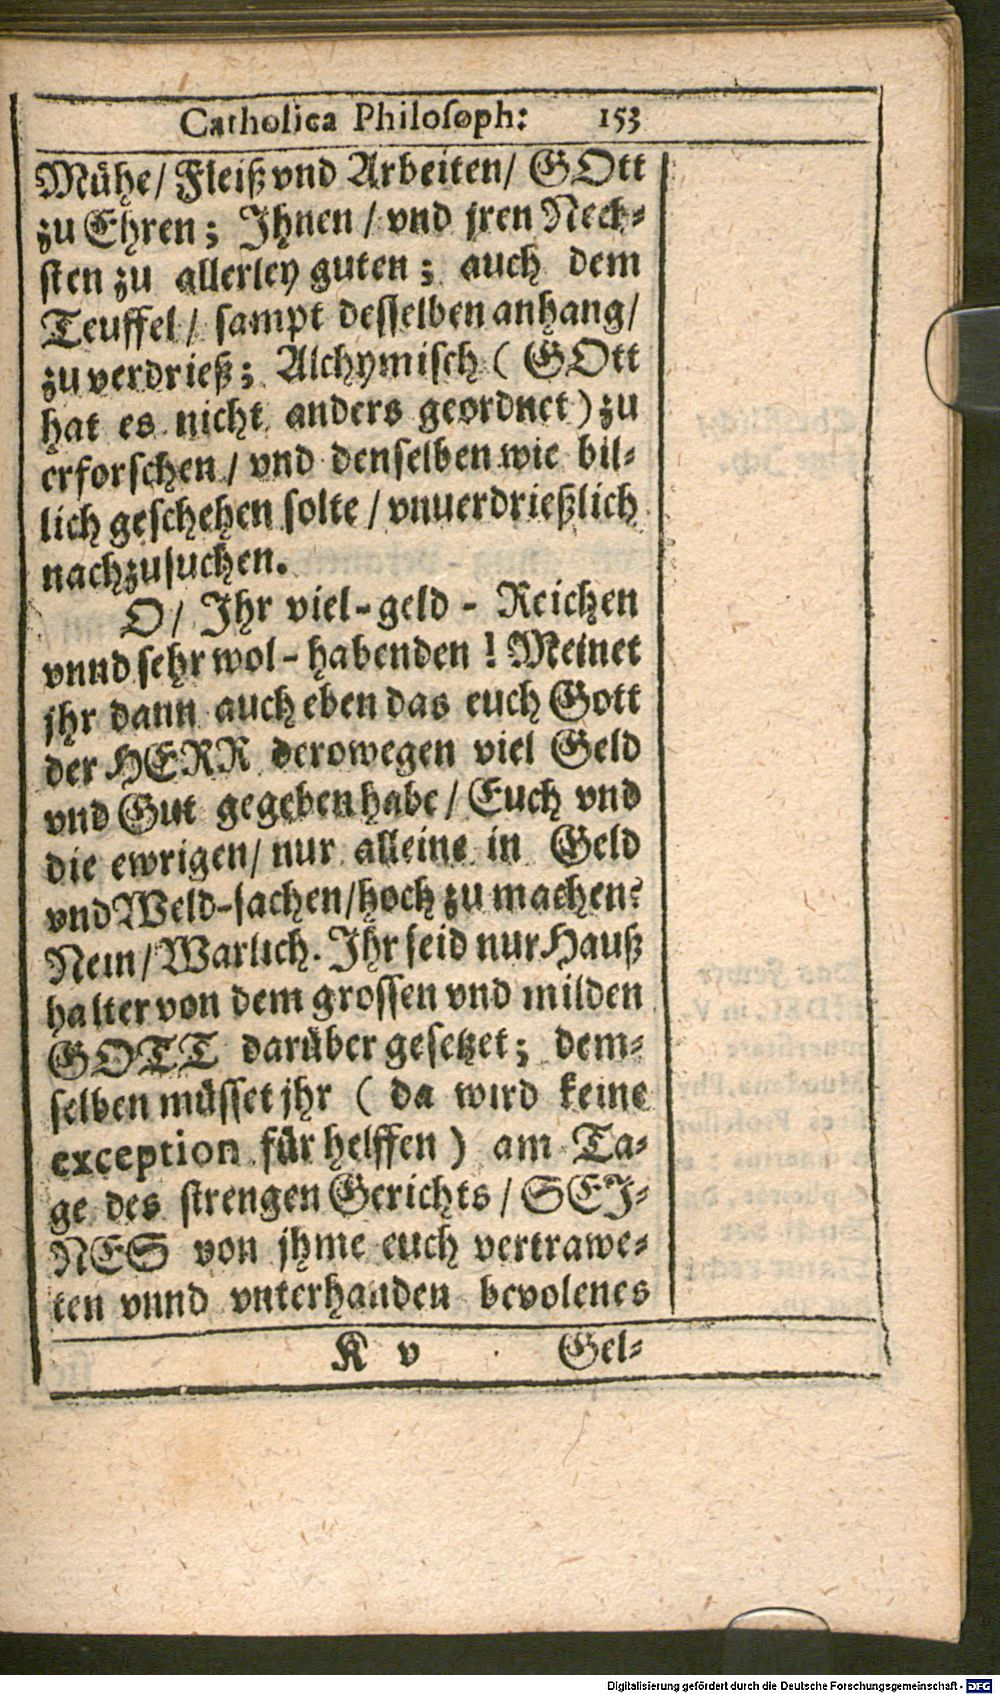 Catholica Philosoph: 153
Mühe/ Fleiß vnd Arbeiten/ GOtt
zu Ehren; Ihnen / vnd jren Nech-
sten zu allerley guten; auch dem
Teuffel/ sampt desselben anhang/
zu verdrieß; Alchymisch ( GOtt
hat es nicht anders geordnet) zu
erforschen/ vnd denselben wie bil-
lich geschehen solte / vnuerdrießlich
nachzusuchen.
O/ Ihr viel-geld - Reichen
vnnd sehr wol-habenden! Meinet
jhr dann auch eben das euch Gott
der HERR derowegen viel Geld
vnd Gut gegeben habe/ Euch vnd
die ewrigen/ nur alleine in Geld
vnd Weld-sachen/hoch zu machen?
Nein/ Warlich. Ihr seid nur Hauß
halter von dem grossen vnd milden
GOTT darüber gesetzet; dem-
selben müsset jhr ( da wird keine
exception für helffen) am Ta-
ge des strengen Gerichts/ SEI-
NES von jhme euch vertrawe-
ten vnnd vnterhanden bevolenes
K v Gel-
Digitalisierung gefördert durch die Deutsche Forschungsgemeinschaft - DFG